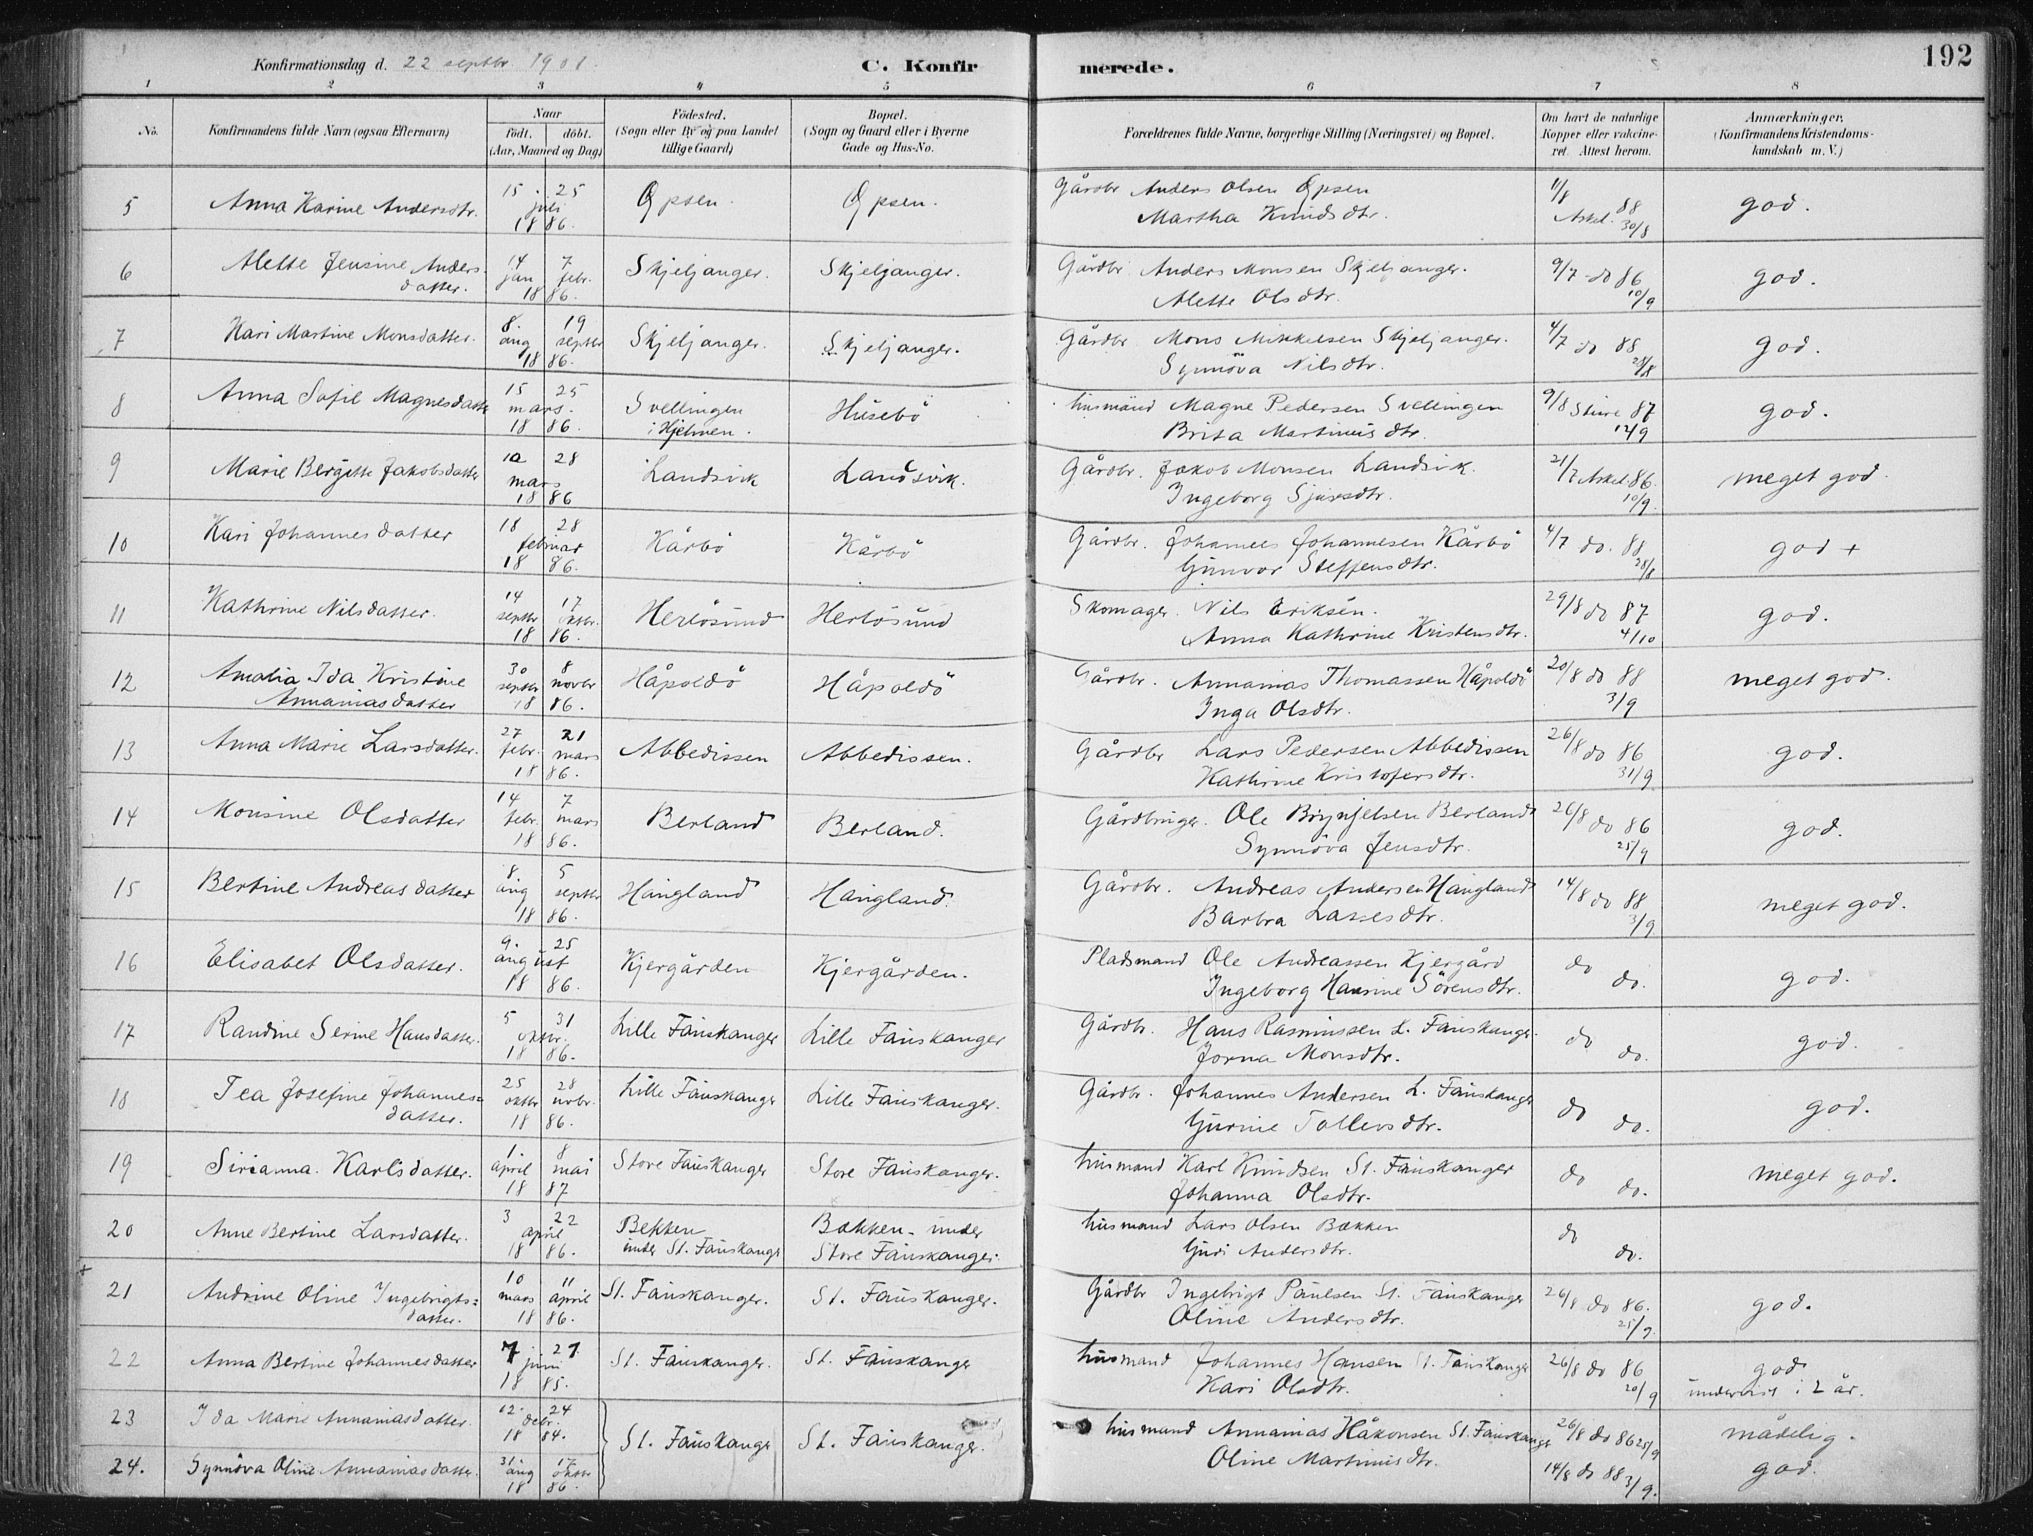 192
Konfirmationsdag d. 22 septbr 1901. C. Konfirmerede.
1 2 3 4 5 6 7 8
No. Konfirmandens fulde Navn (ogsaa Efternavn) Naar født. døbt. (Aar, Maaned og Dag) Fødested. (Sogn eller By og paa Landet tillige Gaard) Bopæl. (Sogn og Gaard eller i Byerne Gade og Hus-No. Forældrenes fulde Navne, borgerlige Stilling (Næringsvei) og Bopæl. Om havt de naturlige Kopper eller vaccineret. Attest herom. Anmærkninger. (Konfirmandens Kristendomskundskab m. V.)
5 Anna Karine Andersdtr. 15. 25 juli 1886. Øpsen. Øpsen. Gårdbr Anders Olsen Øpsen 11/8 88 god.
Martha Knudsdtr. Askel. 30/8
6 Alette Jensine Anders- 14 jan 7 febr. 1886. Skjeljanger. Skjeljanger. Gårdbr. Anders Monsen Skjeljanger. 9/7 do 86 god.
datter. Alette Olsdtr. 10/9
7 Kari Martine Monsdatter. 8. aug 19 septbr 1886. Skjeljanger. Skjeljanger. Gårdbr Mons Mikkelsen Skjeljanger. 4/7 do 88 god.
Synnöva Nilsdtr. 28/8
8 Anna Sofie Magnesdatter 15 25 mars. 1886. Svellingen Husebö husmand Magne Pedersen Svellingen 9/8 Sture 87 god.
i Hjelmen. Brita Martinusdtr. 12/9
9 Marie Bergitte Jakobsdatter 10 28 mars 1886 Landsvik Landsvik. Gårdbr. Jakob Monsen Landsvik. 21/7 Askel. 86. meget god.
Ingeborg Sjursdtr. 10/9.
10 Kari Johannesdatter 18 28 februar 1886. Kårbö Kårbö Gårdbr. Johannes Johannesen Kårbö 4/7 do. 88 god +
Gunvor Steffensdtr. 28/8
11 Kathrine Nilsdatter. 14 septbr 17 oktbr. 1886. Herlösund Herlösund Skomager. Nils Eriksen. 29/8 do 87 god.
Anna Kathrine Kristensdtr. 4/10
12 Amalia Ida Kristine 30 septbr 8 novbr 1886. Håpoldö Håpoldö Gårdbr. Annanias Thomassen Håpoldö 20/8 do 88 meget god.
Annaniasdatter Inga Olsdtr. 3/9
13 Anna Marie Larsdatter. 27 febr. 21 mars 1886. Abbedissen Abbedissen. Gårdbr Lars Pedersen Abbedissen 26/8 do 86 god.
Kathrine Kristofersdtr. 31/9
14 Monsine Olsdatter 14 febr. 7 mars 1886. Berland Berland. Gårdbruger. Ole Brynjelsen Berland 26/8 do 86 god.
Synnöva Jensdtr. 25/9
15 Bertine Andreasdatter 8. aug 5 septbr 1886. Haugland Haugland. Gårdbr. Andreas Andersen Haugland 14/8 do 88 meget god.
Barbra Lassesdtr. 3/9
16 Elisabet Olsdatter. 9. 25 august 1886. Kjergården Kjergården. Pladsmand Ole Andreassen Kjergård do do. god.
Ingeborg Hansine Sörensdtr.
17 Randine Serine Hansdatter. 5 31 oktbr. 1886. Lille Fauskanger Lille Fauskanger Gårdbr. Hans Rasmussen L. Fauskanger. do do. god.
Jorna Monsdtr.
18 Tea Josefine Johannes= 25 oktbr 28 novbr. 1886. Lille Fauskanger Lille Fauskanger. Gårdbr. Johannes Andersen L. Fauskanger do do. god.
datter. Gurine Tollevsdtr.
19 Sirianna Karlsdatter. 1. april 8 mai 1887 Store Fauskanger Store Fauskanger. husmand Karl Knudsen St. Fauskanger do do. meget god.
Johanna Olsdtr.
20 Anne Bertine Larsdatter. 3 22 april 1886. Bekken Bækken - under husmand Lars Olsen Bækken do do.
under St. Fauskanger Store Fauskanger. Guri Andersdtr.
+ 21 Andrine Oline Ingebrigts= 10 mars 11 april 1886. St. Fauskanger. St. Fauskanger. Gårdbr Ingebrigt Paulsen St. Fauskanger 26/8 do 86. god.
datter. Oline Andersdtr. 25/9.
22 Anna Bertine Johannesdatter 7 27 juni 1885. St. Fauskanger. St. Fauskanger husmand Johannes Hansen St. Fauskanger 26/8 do 86 god
Kari Olsdtr. 20/9 undervist i 2 år.
23 Ida Marie Annaniasdatter. 12. 24 debr. 1884. St. Fauskanger St. Fauskanger. husmand Annanias Håkonsen St. Fauskanger 26/8 do 86 25/9 mådelig.
24. Synnöva Oline Annaniasdatter. 31 aug 17 oktbr 1886. Oline Martinusdtr. 14/8 do 88 3/9. god.